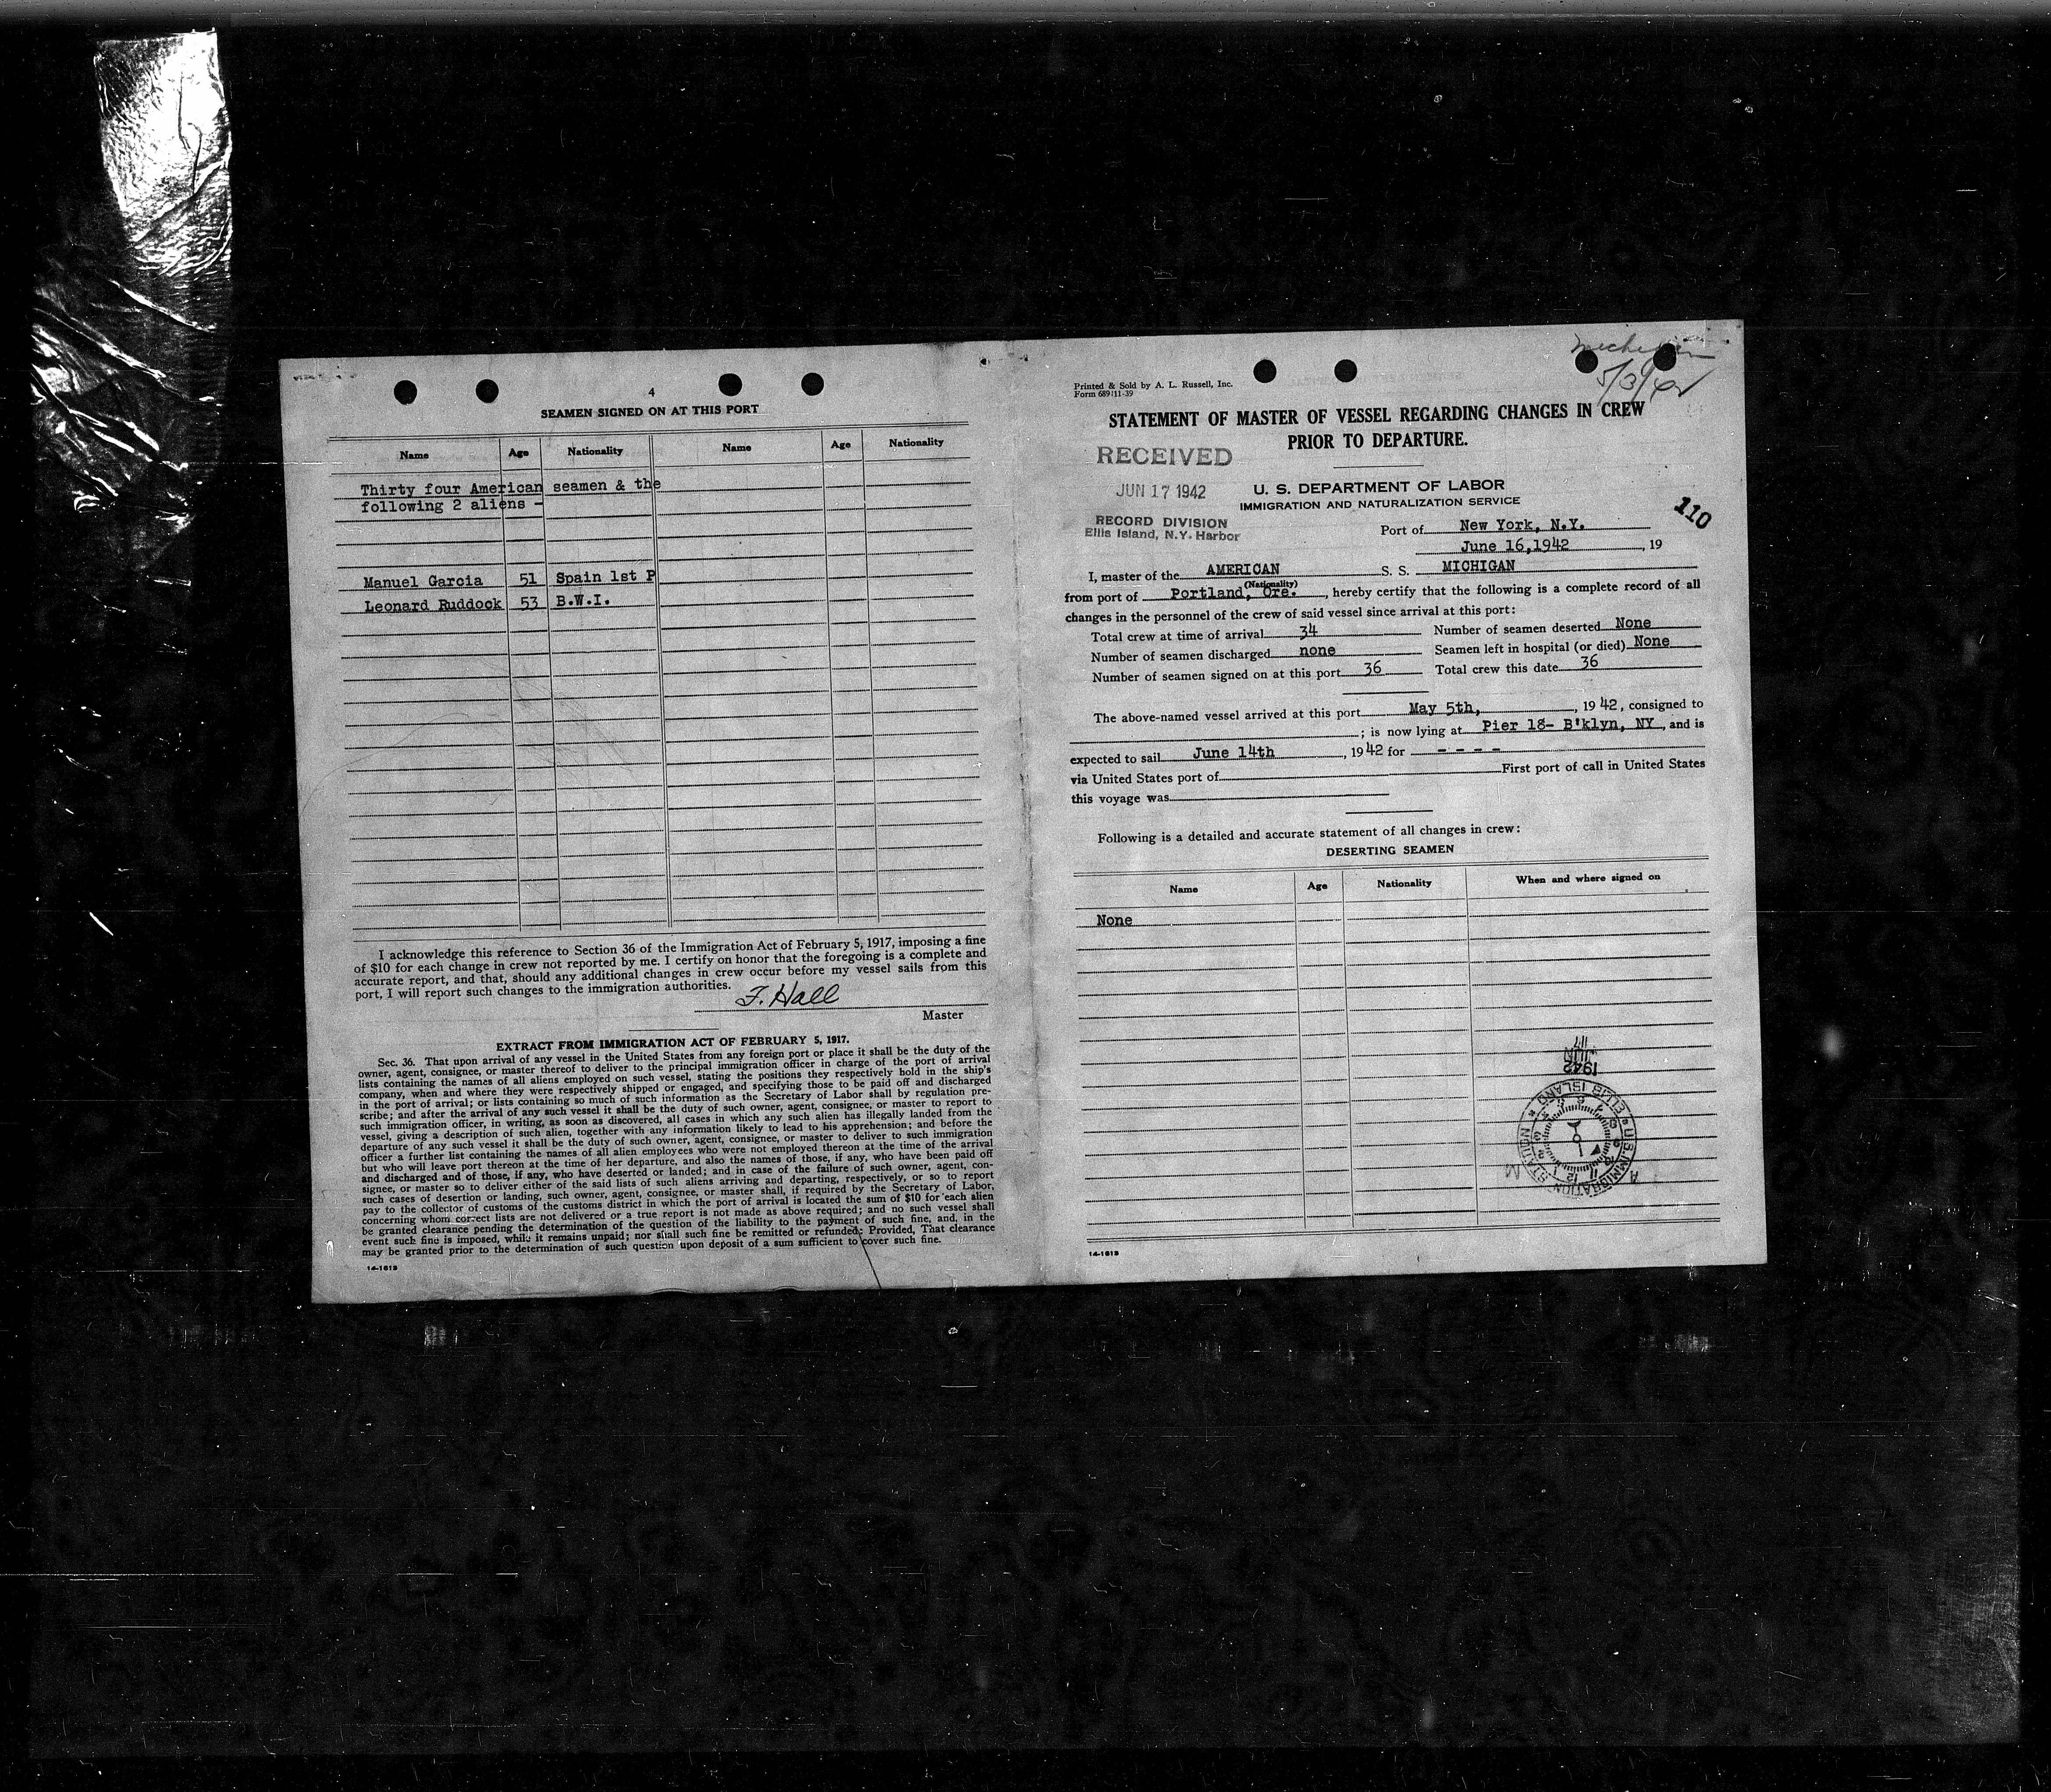 4
SEAMEN SIGNED ON AT THIS PORT
Name Age Nationality Name Age Nationality
Thirty four American seamen & the
following 2 aliens -
Manuel Garcia 51 Spain 1st P
Leonard Ruddock 53 B.W.I.
I acknowledge this reference to Section 36 of the Immigration Act of February 5, 1917, imposing a fine
of $10 for each change in crew not reported by me. I certify on honor that the foregoing is a complete and
accurate report, and that, should any additional changes in crew occur before my vessel sails from this
port, I will report such changes to the immigration authorities.
F. Hall
Master
EXTRACT FROM IMMIGRATION ACT OF FEBRUARY 5, 1917.
Sec. 36. That upon arrival of any vessel in the United States from any foreign port or place it shall be the duty of the
owner, agent, consignee, or master thereof to deliver to the principal immigration officer in charge of the port of arrival
lists containing the names of all aliens employed on such vessel, stating the positions they respectively hold in the ship's
company, when and where they were respectively shipped or engaged, and specifying those to be paid off and discharged
in the port of arrival; or lists containing so much of such information as the Secretary of Labor shall by regulation pre-
scribe; and after the arrival of any such vessel it shall be the duty of such owner, agent, consignee, or master to report to
such immigration officer, in writing, as soon as discovered, all cases in which any such alien has illegally landed from the
vessel, giving a description of such alien, together with any information likely to lead to his apprehension; and before the
departure of any such vessel it shall be the duty of such owner, agent, consignee, or master to deliver to such immigration
officer a further list containing the names of all alien employees who were not employed thereon at the time of the arrival
but who will leave port thereon at the time of her departure, and also the names of those, if any, who have been paid off
and discharged and of those, if any, who have deserted or landed; and in case of the failure of such owner, agent, con-
signee, or master so to deliver either of the said lists of such aliens arriving and departing, respectively, or so to report
such cases of desertion or landing, such owner, agent, consignee, or master shall, if required by the Secretary of Labor,
pay to the collector of customs of the customs district in which the port of arrival is located the sum of $10 for each alien
concerning whom correct lists are not delivered or a true report is not made as above required; and no such vessel shall
be granted clearance pending the determination of the question of the liability to the payment of such fine, and, in the
event such fine is imposed, while it remains unpaid; nor shall such fine be remitted or refunded: Provided, That clearance
may be granted prior to the determination of such question upon deposit of a sum sufficient to cover such fine.
14-1613
Michigan
5/3/42
Printed & Sold by A. L. Russell, Inc.
Form 689:11-39
STATEMENT OF MASTER OF VESSEL REGARDING CHANGES IN CREW
PRIOR TO DEPARTURE.
RECEIVED
JUN 17 1942
RECORD DIVISION
Ellis Island, N.Y. Harbor
U. S. DEPARTMENT OF LABOR
IMMIGRATION AND NATURALIZATION SERVICE
110
Port of New York, N.Y.
June 16,1942, 19
I, master of the AMERICAN S. S. MICHIGAN
(Nationality)
from port of Portland, Ore., hereby certify that the following is a complete record of all
changes in the personnel of the crew of said vessel since arrival at this port:
Total crew at time of arrival 34 Number of seamen deserted None
Number of seamen discharged none Seamen left in hospital (or died) None
Number of seamen signed on at this port 36 Total crew this date 36
The above-named vessel arrived at this port May 5th, , 1942, consigned to
; is now lying at Pier 18- B'klyn, NY, and is
expected to sail June 14th, 1942 for - - - -
via United States port of First port of call in United States
this voyage was
Following is a detailed and accurate statement of all changes in crew:
DESERTING SEAMEN
Name Age Nationality When and where signed on
None
1942
JUN
17
U.S. IMMIGRATION STATION
ELLIS ISLAND
14-1613